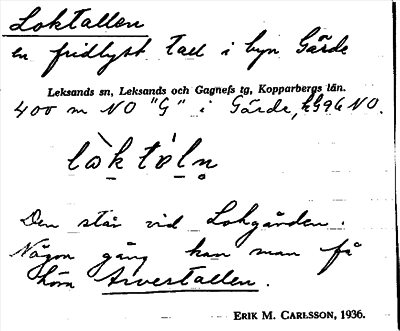 Loktallen
en fridlyst tall i byn Gärde
Leksands sn, Leksands och Gagnefs tg, Kopparbergs län.
400 m NO "G" i Gärde, kG96NO.
lòk táln
Den står vid Lokgården.
Någon gång kan man få
höra Arvestallen.
ERIK M. CARLSSON, 1936.